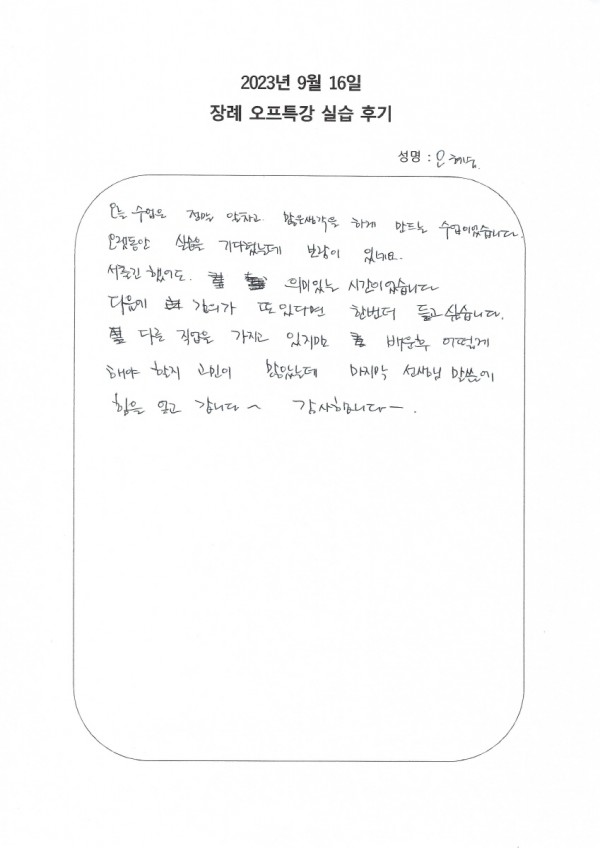 2023년 9월 16일
장례 오프특강 실습 후기
성명 : 오혜녕
오늘 수업은 정말 알차고 많은생각을 하게 만드는 수업이었습니다.
오랫동안 실습을 기다렸는데 보람이 있네요.
서툴긴 했어도. 의미있는 시간이었습니다
다음에 강의가 또 있다면 한번더 듣고 싶습니다.
다른 직업을 가지고 있지만 배운후 어떻게
해야 할지 고민이 많았는데 마지막 선생님 말씀에
힘을 얻고 갑니다~ 감사합니다-.